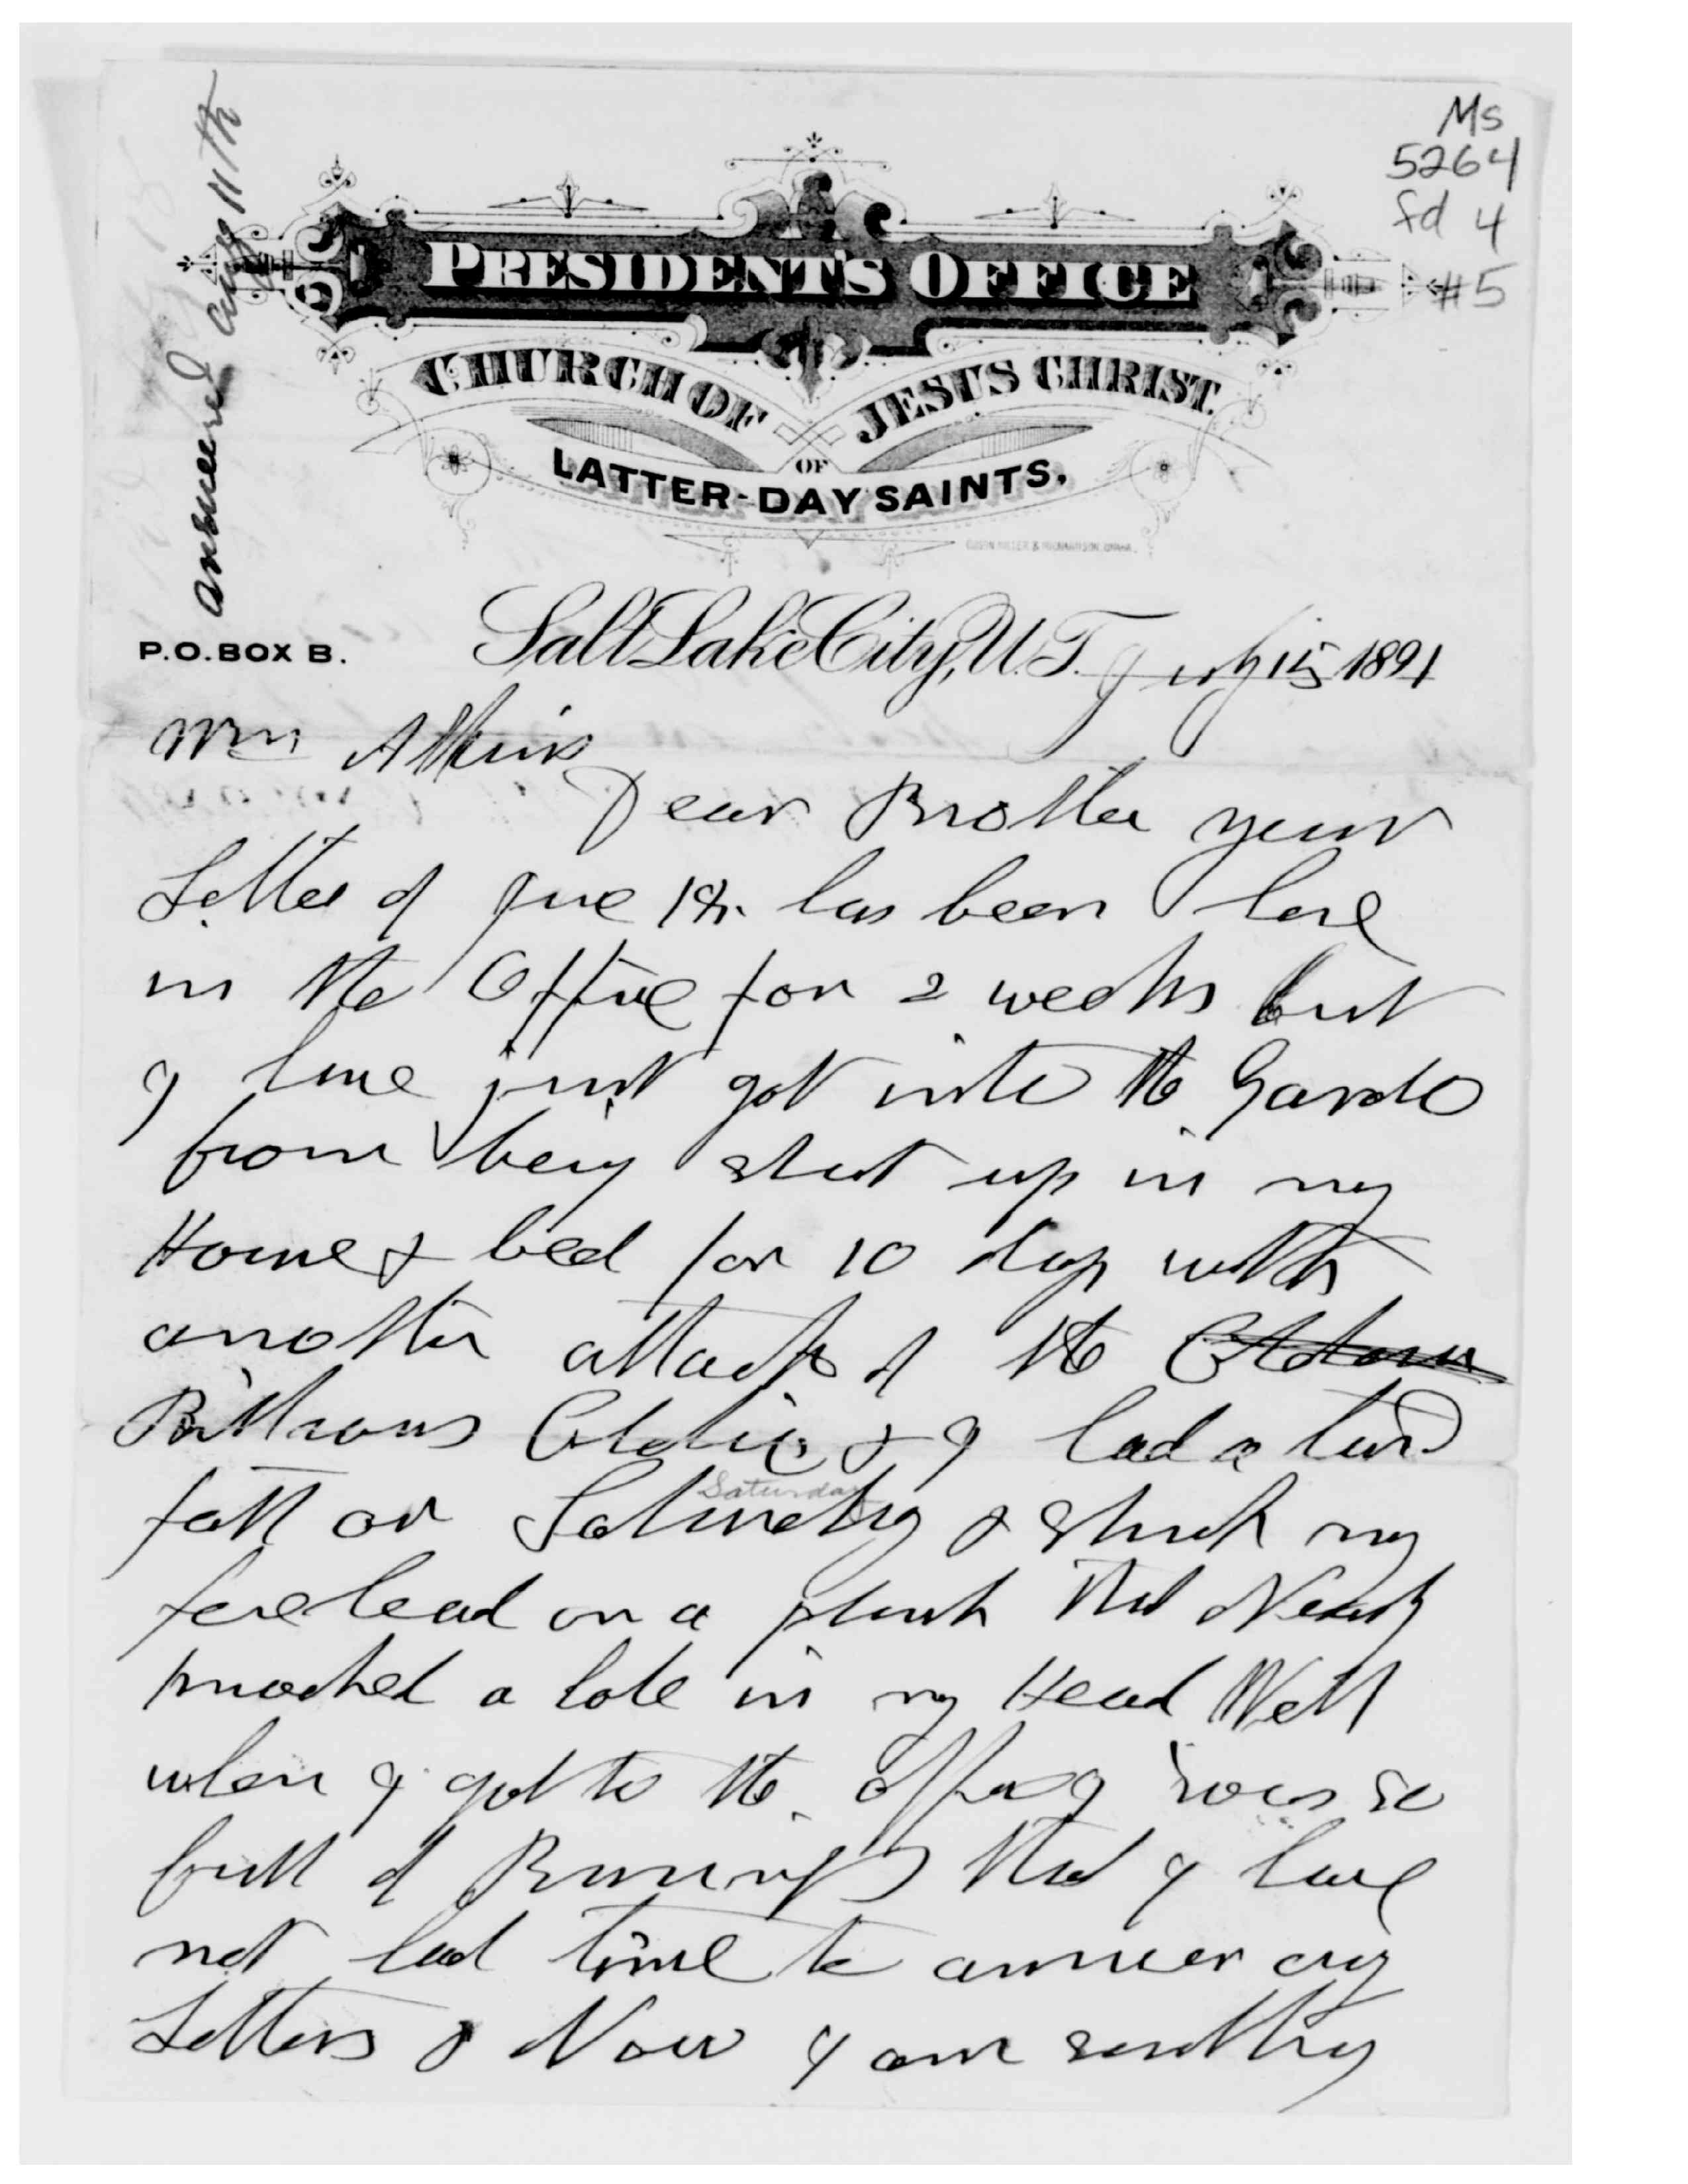 Ms
5264
fd 4
#5
answered aug 11th
PRESIDENT'S OFFICE
CHURCH OF JESUS CHRIST
OF
LATTER-DAY SAINTS.
P.O. BOX B.
Salt Lake City, U.T. July 15 1891
Wm Atkin
Dear Brother your
Letter of June 18. has been here
in the Office for 2 weeks but
I have just got into the Gardo
from being shut up in my
Home & bed for 10 days with
another attack of the
Billious Cholic & I had a hard
fall on Saturday & struck my
Saturday
forehead on a plank that Nearly
knocked a hole in my Head Well
when I got to the office I was so
full of Buisness that I have
not had time to answer any
Letters & Now I am